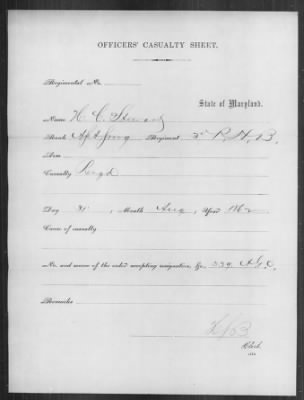 OFFICERS' CASUALTY SHEET.
Regimental No.
State of Maryland.
Name H. C.
Rank Regiment P. H. B.
Arm
Casualty Resgd
Day 31 , Month Aug , Year 1862
Cause of casualty
No. and source of the order accepting resignation, &c. 239. A.G.O.
Remarks
Clerk.